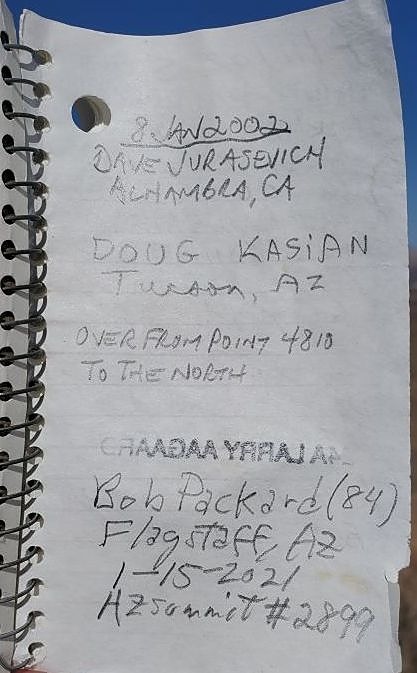 8 JAN 2002
DAVE JURASEVICH
ALHAMBRA, CA
DOUG KASiAN
Tucson, AZ
OVER FROM POINT 4810
TO THE NORTH
LARRY
Bob Packard (84)
Flagstaff, AZ
1-15-2021
AZ summit # 2899